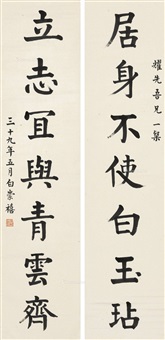 耀先吾兄一粲
居身不使白玉玷
立志宜與青雲齊
三十九年五月白崇禧